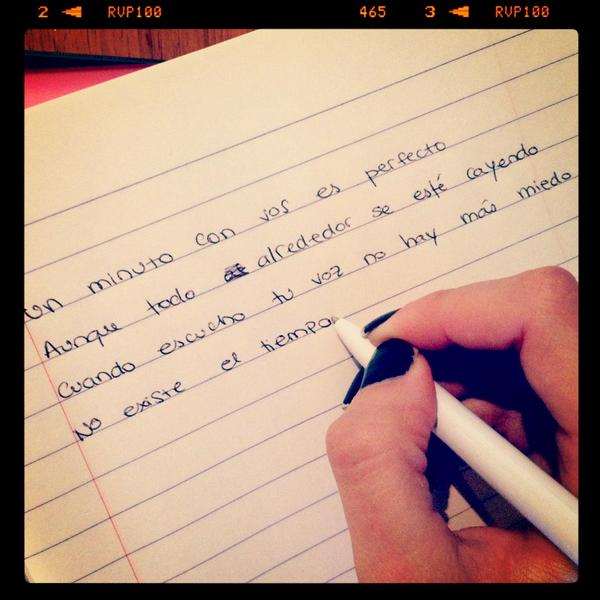 2 RVP100 465 3 RVP100
un minuto con vos es perfecto
Aunque todo alrededor se esté cayendo
Cuando escucho tu voz no hay más miedo
No existe el tiempo